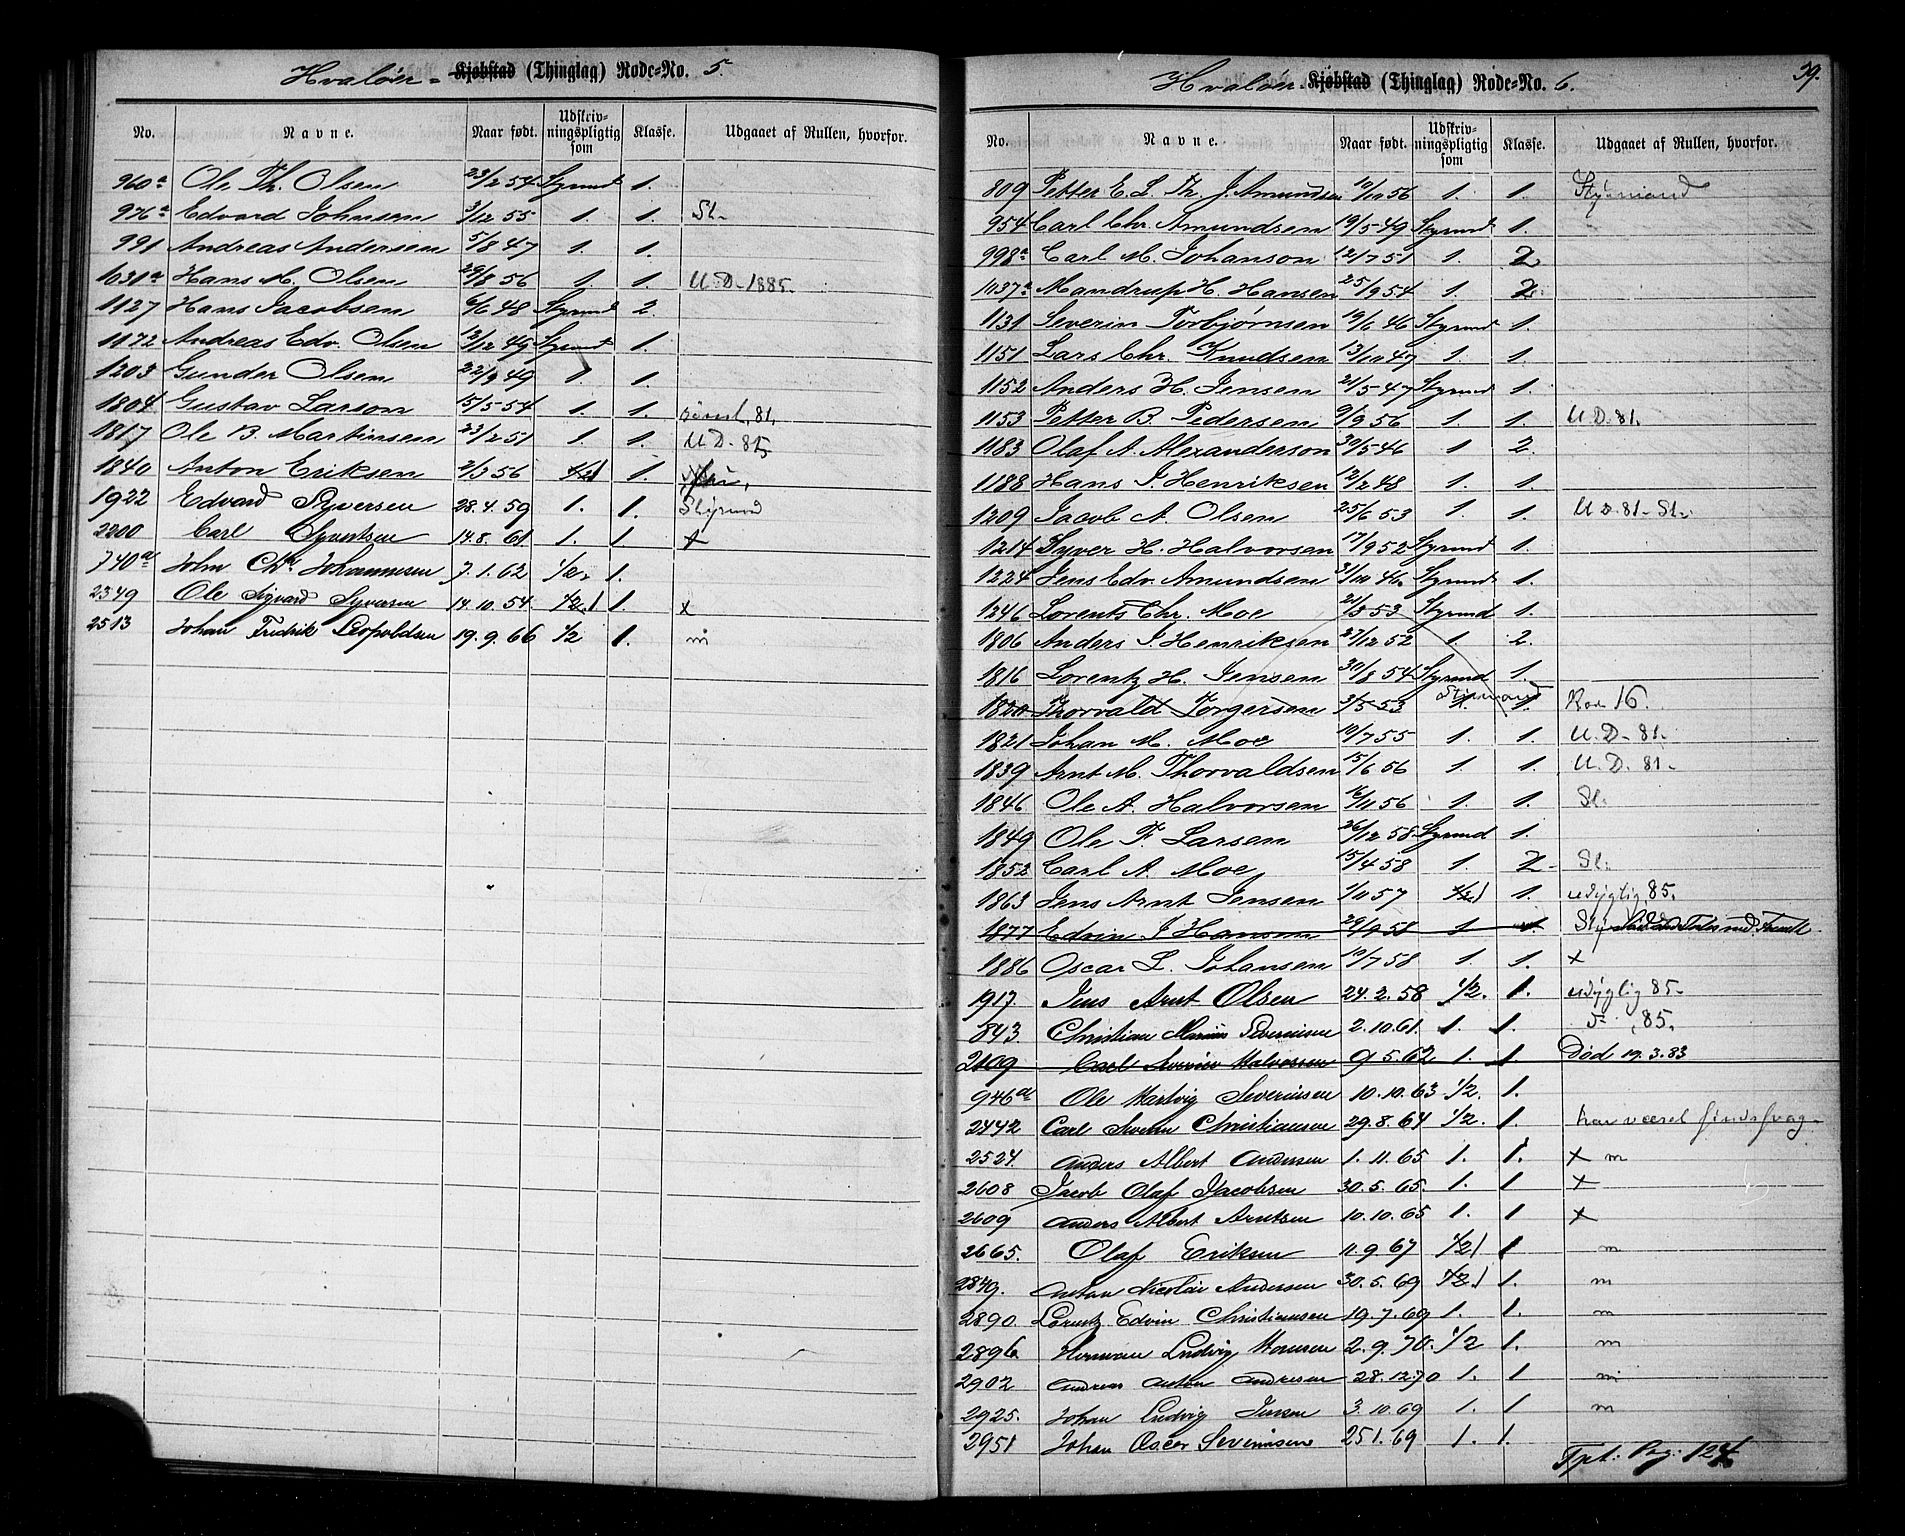 Hvaløer - Kjøbstad (Thinglag) Rode-No. 5.
No. Navne. Naar født. Udskrivningspligtig som Klasse. Udgaaet af Rullen, hvorfor.
960a Ole Th. Olsen 23/2 54 Styrmd 1.
976a Edvard Johnsen 3/12 55 1. 1. St.
991 Andreas Andersen 5/8 47 1. 1.
1031a Hans M. Olsen 29/8 56 1. 1. U.D. 1885.
1127 Hans Jacobsen 6/6 48 Styrmd 2.
1172 Andreas Edv. Olsen 13/12 49 Styrmd 1.
1203 Gunder Olsen 22/9 49 1. 1.
1804 Gustav Larson 15/5 54 1. 1. 81.
1817 Ole B. Martinsen 23/2 51 1. 1. U.D. 85
1840 Anton Eriksen 2/3 56 1/2 1 1.
1922 Edvard Syversen 28.4.59 1. 1. Styrmd
2200 Carl Syvertsen 14.8.61 1. 1 x
740al John Chr Johannesen 7.1.62 1/2. 1.
2349 Ole Sigvard Syversen 14.10.54. 1/2 1 1. x
2513 Johan Fredrik Leopoldsen 19.9.66 1/2 1. m
Hvaløer - Kjøbstad (Thinglag) Rode-No. 6. 39.
No. Navne. Naar født. Udskrivningspligtig som Klasse. Udgaaet af Rullen, hvorfor.
809 Petter E. L. Th. J. Amundsen 19/10 56 1. 1. Styrmand
954 Carl Chr. Amundsen 19/5 49 Styrmd 1.
998a Carl M. Johanson 12/7 51 1. 2
1037a Mandrup H. Hansen 25/9 54 1. 2.
1131 Severin Torbjørnsen 19/6 46 Styrmd 1.
1151 Lars Chr. Knudsen 13/10 47 1. 1.
1152 Anders H. Jensen 21/5 47 Styrmd 1.
1153 Petter B. Pedersen 9/9 56 1. 1. U.D. 81.
1183 Olaf A. Alexanderson 30/5 46 1 2.
1188 Hans J. Henriksen 12/2 48 1. 1.
1209 Jacob A. Olsen 25/6 53 1. 1. U.D. 81. St.
1214 Syver H. Halvorsen 17/9 52 Styrmd 1.
1224 Jens Edv. Amundsen 31/10 46 Styrmd 1.
1246 Lorents Chr. Moe 21/3 53 Styrmd 1.
1806 Anders J. Henriksen 27/12 52 1. 2.
1816 Lorentz H. Jensen 30/8 54 Styrmd 1.
1820 Thorvald Jørgensen 3/5 53 Styrmand 1. 1. Rode 16.
1821 Johan M. Moe 19/7 55 1. 1. U.D. 81.
1839 Arnt M. Thorvaldsen 15/6 56 1. 1. U.D. 81.
1846 Ole A. Halvorsen 16/11 56 1. 1. St.
1849 Ole F. Larsen 26/12 58 Styrmd 1.
1852 Carl A. Moe 15/4 58 1. 2 St.
1863 Jens Arnt Jensen 1/11 57 1/2 1 1. udygtig 85.
1877 Edvin J Hansen 29/9 58 1 1.
1886 Oscar L. Johansen 19/7 58 1. 1. x
1917. Jens Arnt Olsen 24.2.58 1/2. 1. udygtig 85.
843 Christian Marius Severinsen 2.10.61. 1. 1. 85.
2109 Carl Severin Halvorsen 9 5.62 1. 1. Død 19.3.83
946al Ole Martvig Severinsen 10.10.63 1/2. 1.
2442 Carl Severin Christiansen 29.8.64 1/2. 1. har været sindssvag
2524 Anders Albert Andersen 1.11.65 1. 1. x m
2608 Jacob Olaf Jacobsen 30.5.65. 1. 1 x
2609 Anders Albert Arntsen 10.10.65 1. 1 x
2665. Olaf Eriksen 11.9.67 1/2 1 1 m
2849. Anton Nicolai Andersen 30.5.69 1/2 1 1. m
2890. Lorentz Edvin Christiansen 19.7.69 1. 1. m
2896 Herman Ludvig Hansen 2.9.70. 1/2 1. m
2902 Andreas Anton Andresen 28.12.70 1. 1. m
2925. Johan Ludvig Jensen 3.10.69 1. 1 m
2951 Johan Oscar Severinsen 25 1.69 1. 1.
Fort. Pag. 124